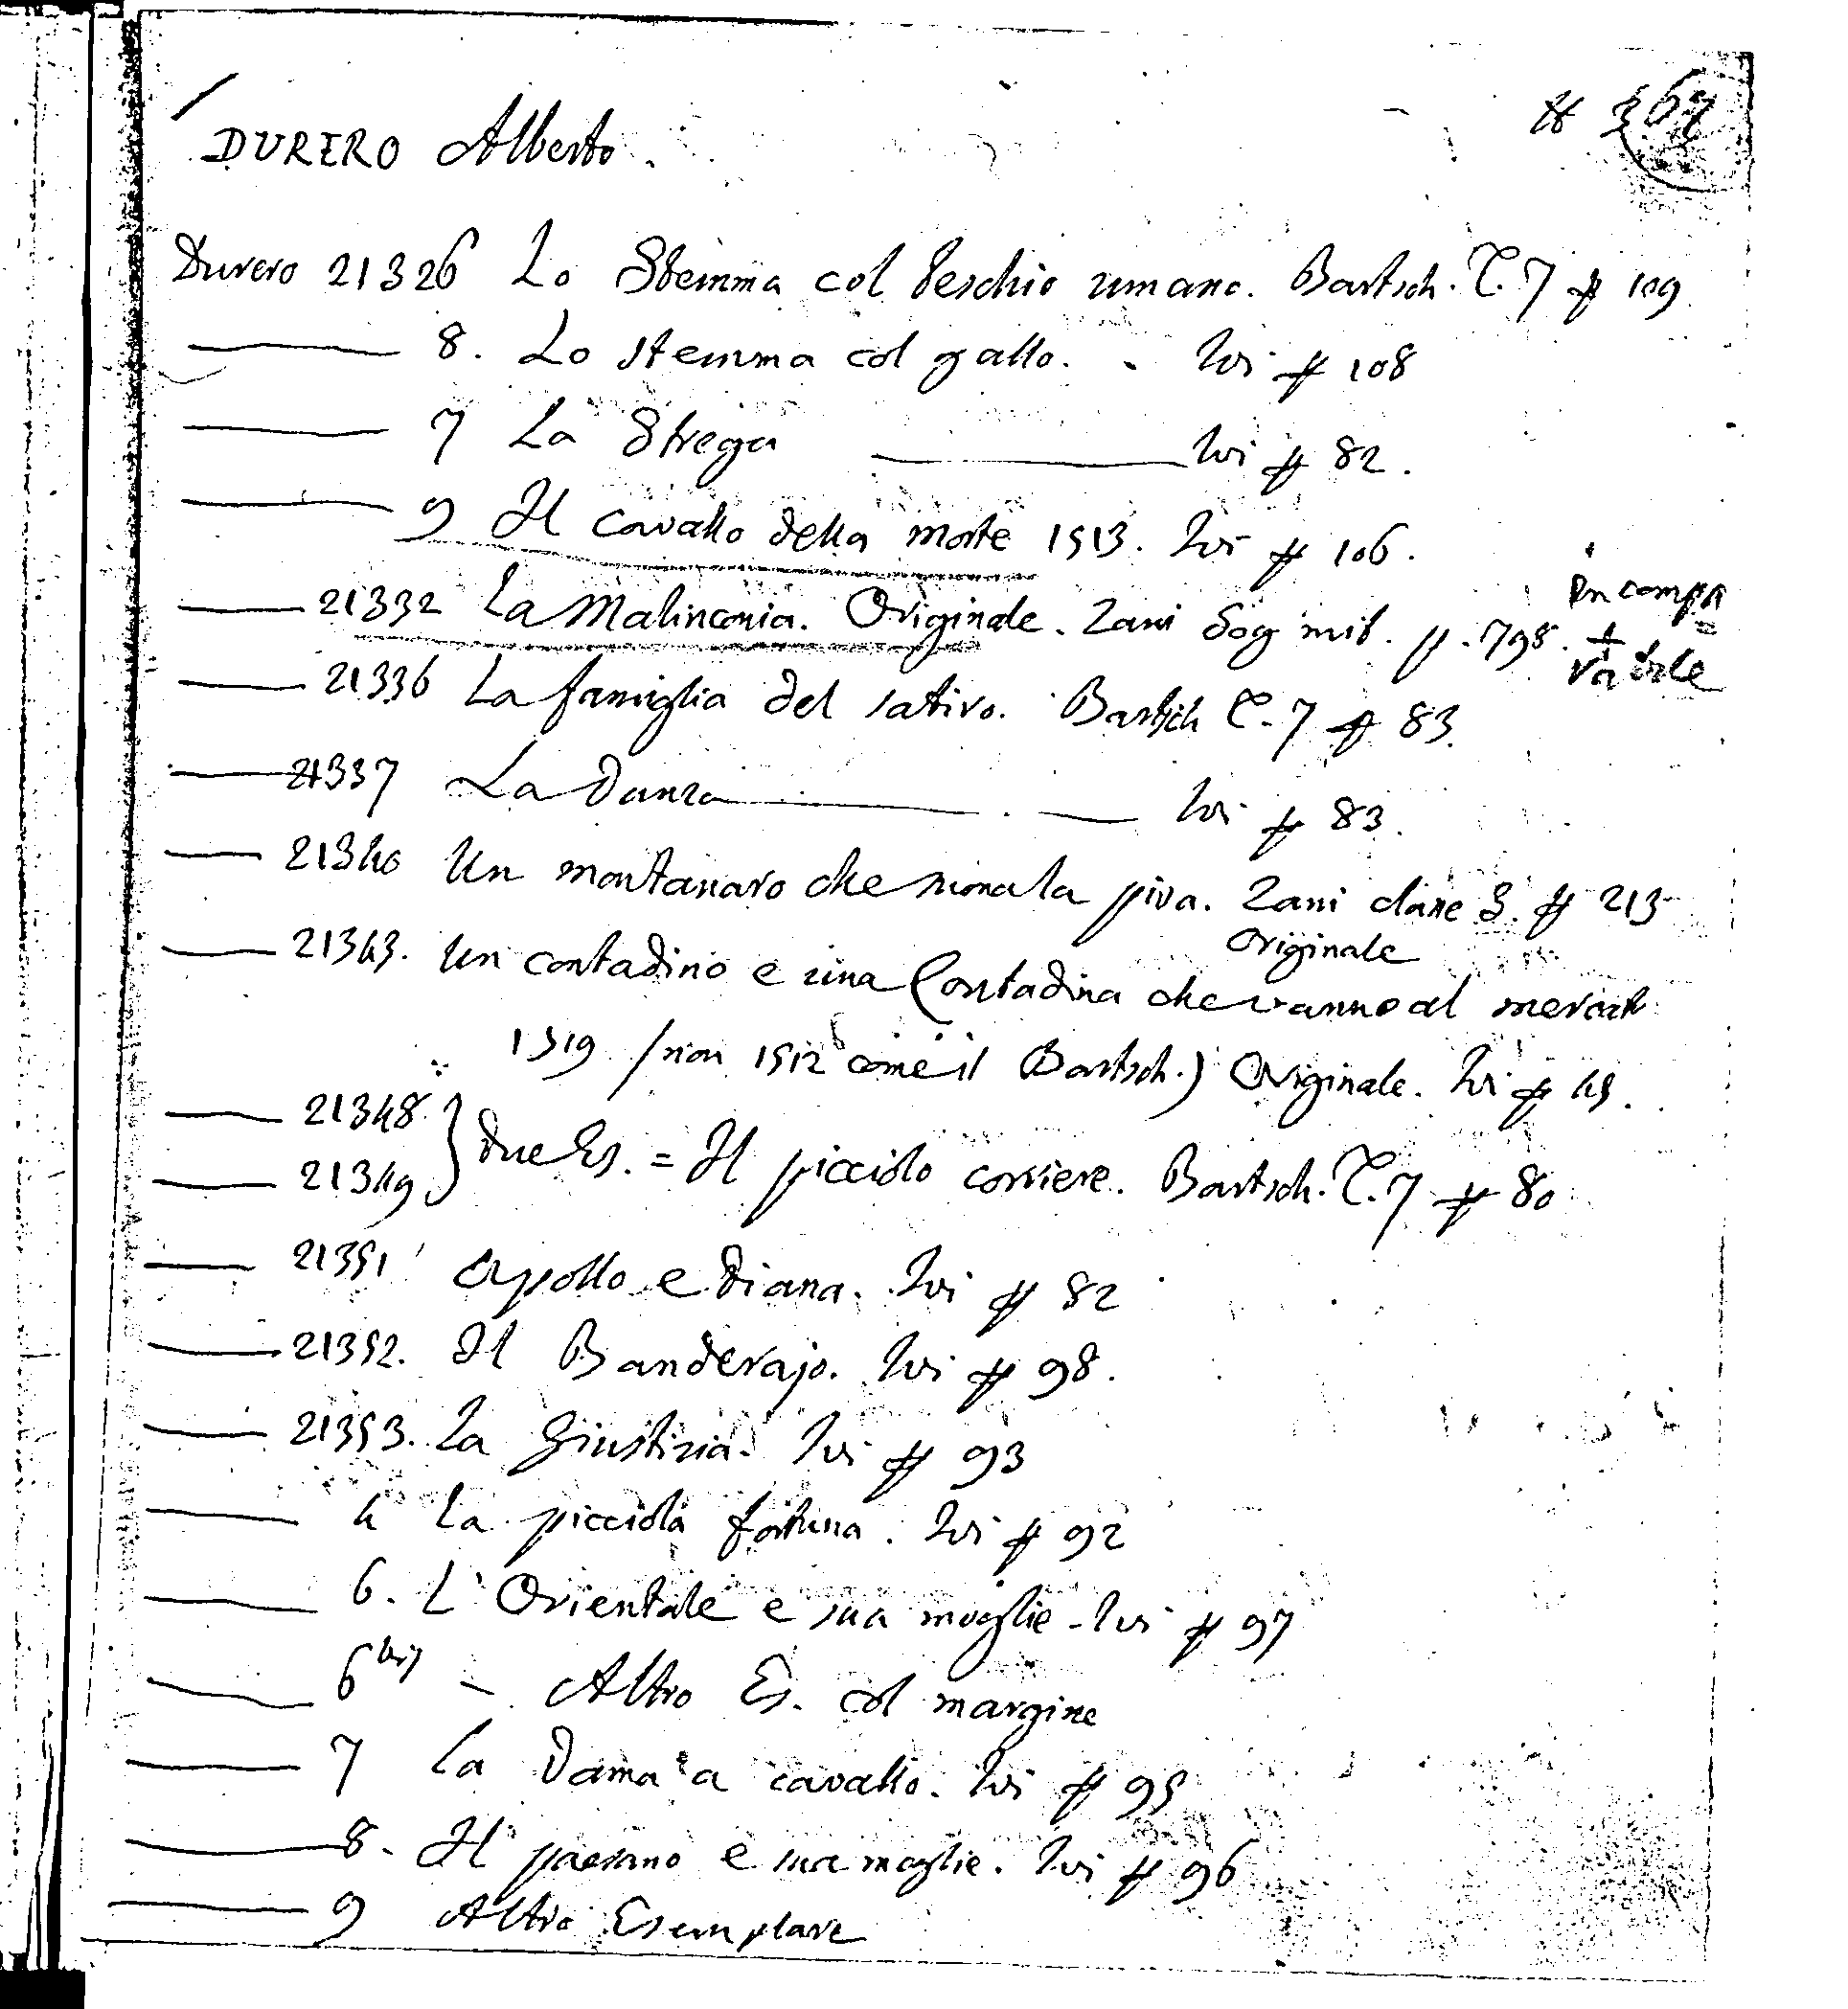 DURERO Alberto.
Durero 21326 Lo Stemma col teschio umano. Bartsch. T. 7 p 109
8. Lo stemma col gallo. Ivi p 108
7 La Strega Ivi p 82.
9 Il cavallo della morte 1513. Ivi p 106.
21332 La Malinconia. Originale. Zani Sog mit. p. 798. Incompa=
rabile
21336 La famiglia del satiro. Bartsch T. 7 p 83.
21337 La Danza Ivi p 83.
21340 Un montanaro che suona la piva. Zani classe 3. p 213
Originale
21343. Un contadino e una Contadina che vanno al mercato
1519 (non 1512 come il Bartsch.) Originale. Ivi p 45.
21348. } due Es. = Il picciolo corriere. Bartsch. T. 7 p 80
21349
21351 Apollo e Diana. Ivi p 82
21352. Il Banderajo. Ivi p 98.
21353. La Giustizia. Ivi p 93
4 La picciola fortuna. Ivi p 92
6. L'Orientale e sua moglie - Ivi p 97
6 bis - Altro Es. col margine
7 La Dama a cavallo. Ivi p 95
8. Il paesano e sua moglie. Ivi p 96
9 Altro Esemplare